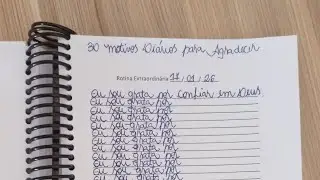 30 motivos Diários para Agradecer
Rotina Extraordinária 17/01/26
Eu sou grata por confiar em Deus
Eu sou grata por
Eu sou grata por
Eu sou grata por
Eu sou grata por
Eu sou grata por
Eu sou grata por
Eu sou grata por
Eu sou grata por
Eu sou grata por